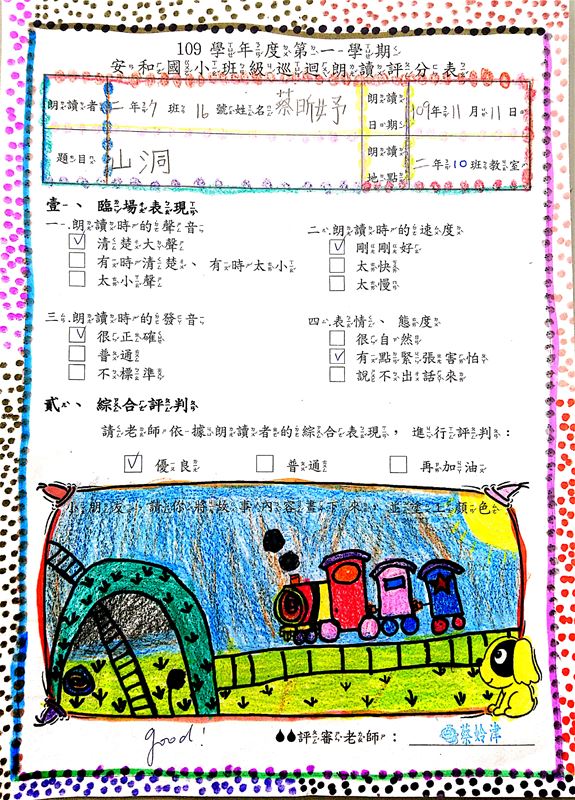 109學年度第一學期
安和國小班級巡迴朗讀評分表
朗讀者 二年7班16號姓名 蔡昕妤 朗讀日期 109年11月11日
題目 山洞 朗讀地點 二年10班教室
壹、臨場表現
一.朗讀時的聲音
清楚大聲
有時清楚、有時太小
太小聲
二.朗讀時的速度
剛剛好
太快
太慢
三.朗讀時的發音
很正確
普通
不標準
四.表情、態度
很自然
有點緊張害怕
說不出話來
貳、綜合評判
請老師依據朗讀者的綜合表現，進行評判：
優良 普通 再加油
小朋友，請你將故事內容畫下來，並塗上顏色
good!
評審老師：蔡姈津